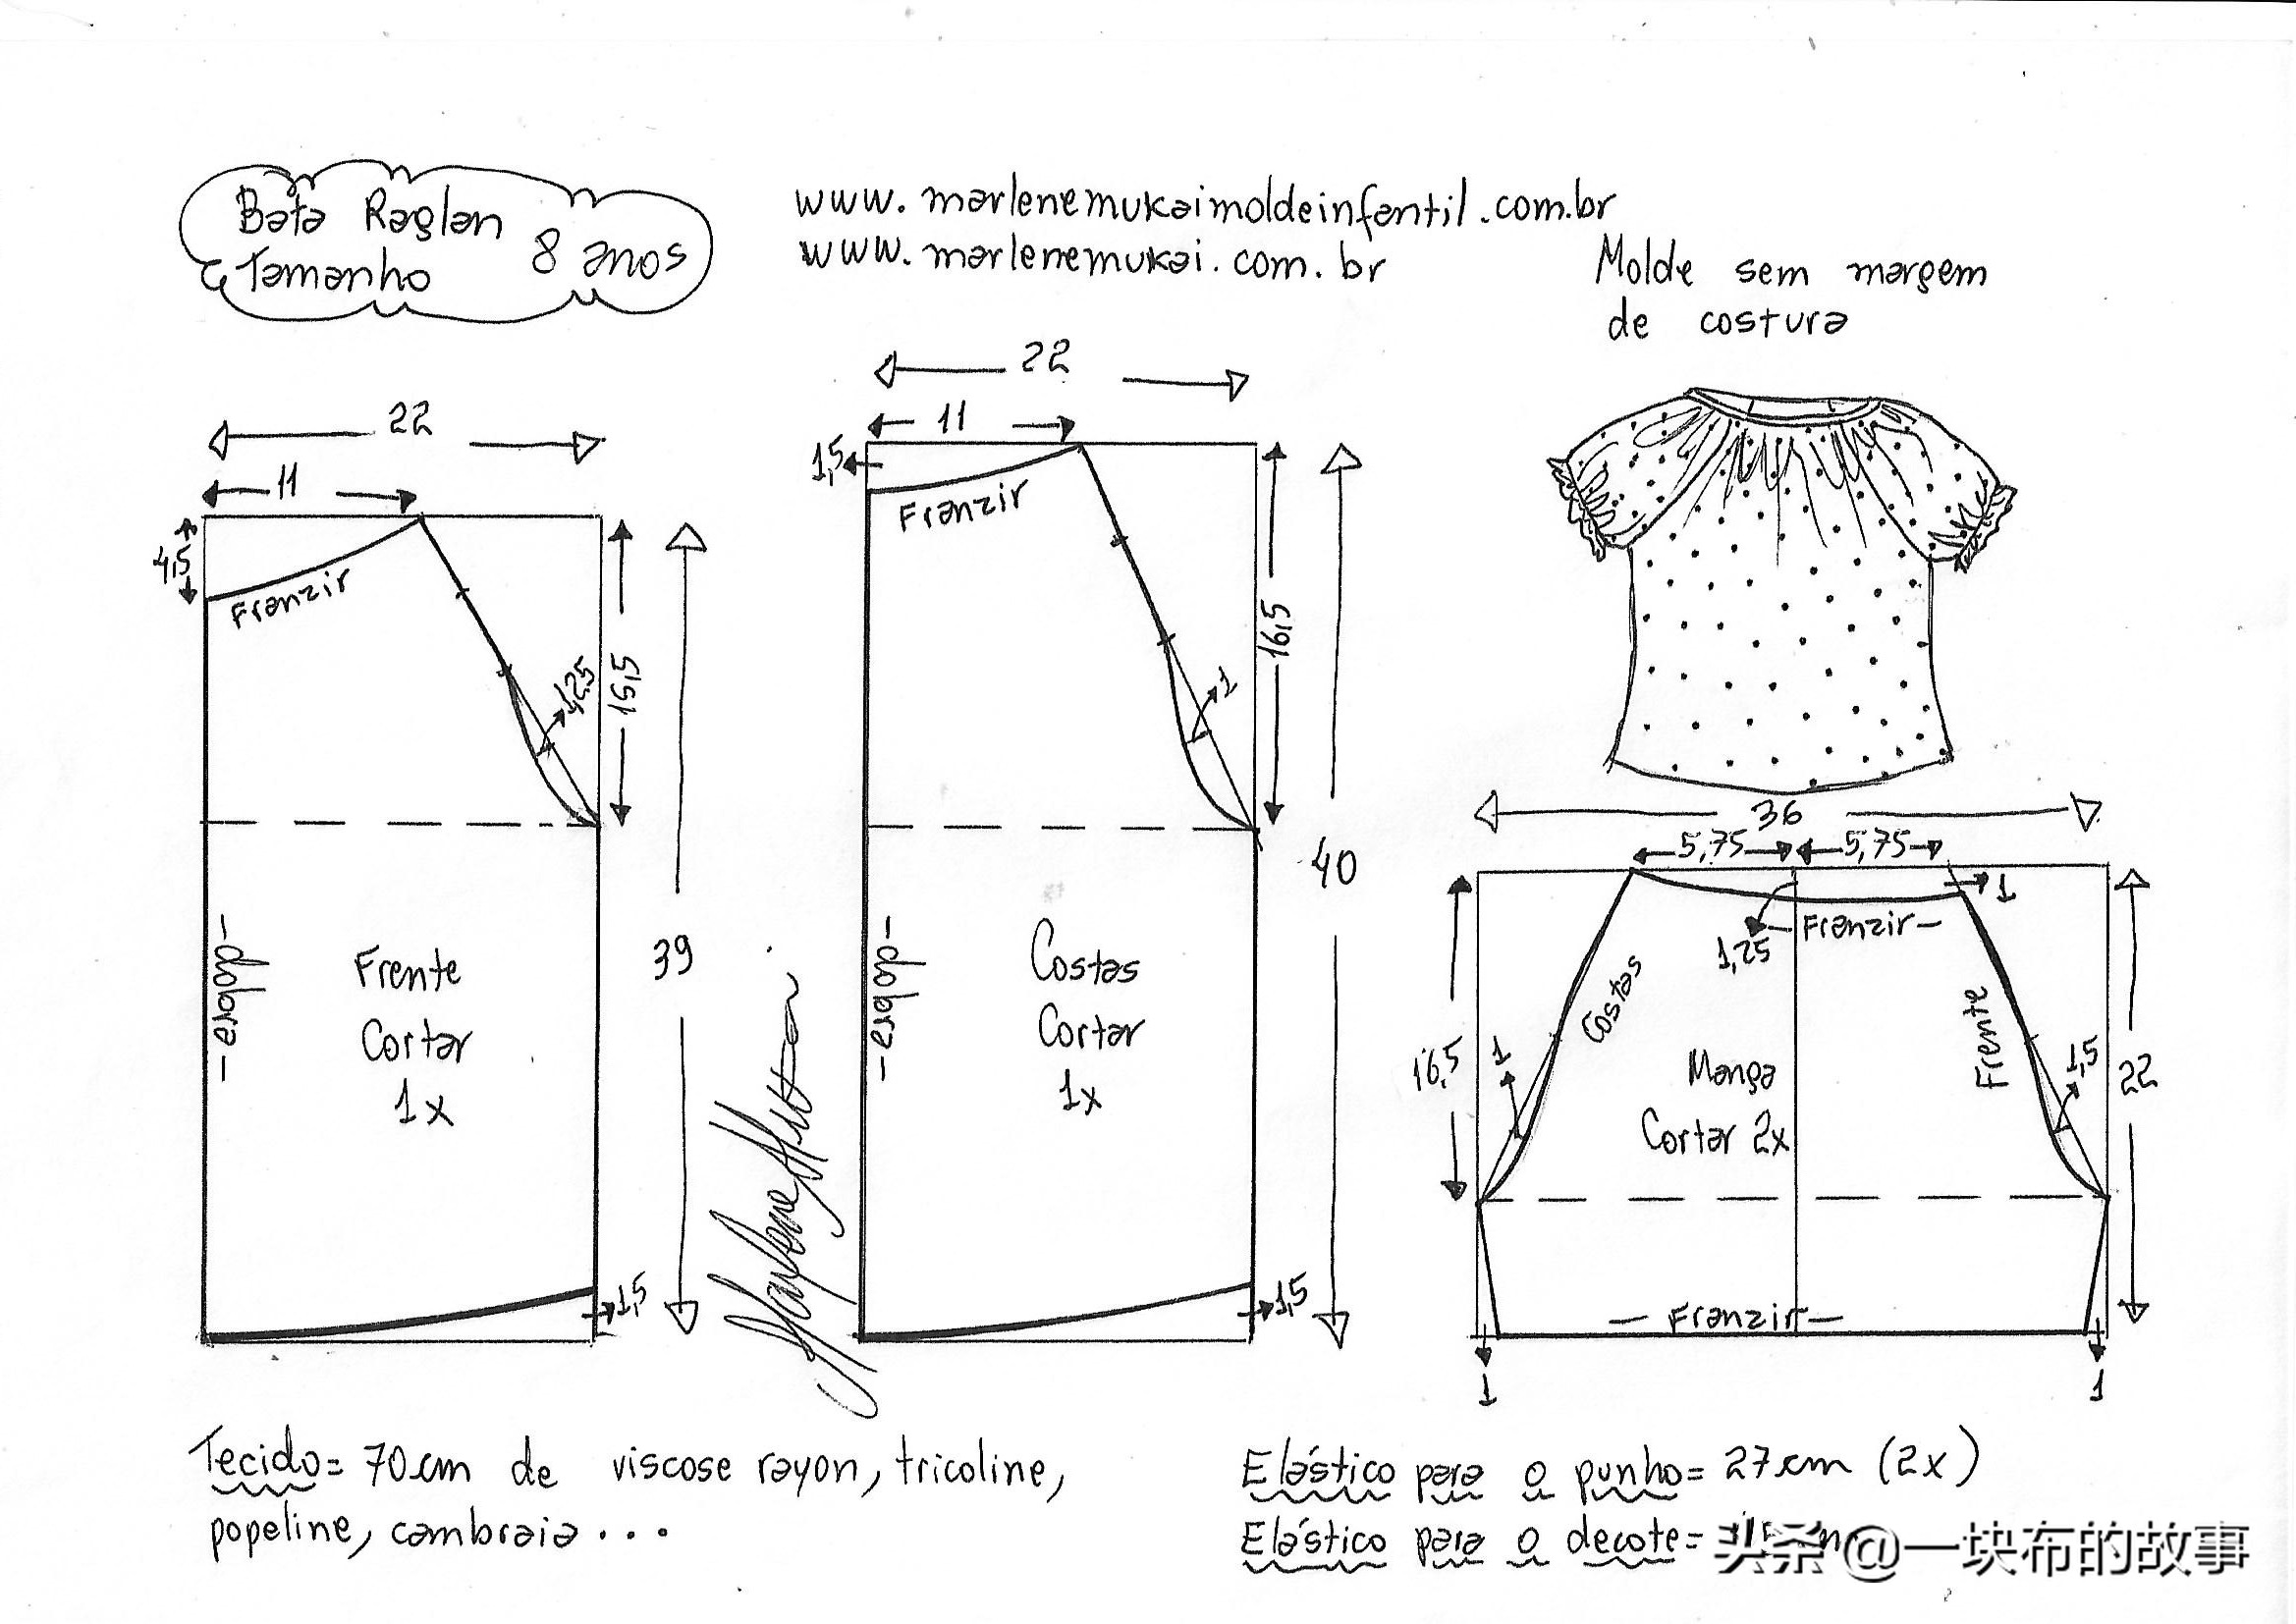 Bata Raglan
Tamanho 8 anos
www.marlenemukaimoldeinfantil.com.br
www.marlenemukai.com.br
Molde sem margem
de costura
22
11
4,5
Franzir
15,5
39
-dobra-
Frente
Cortar
1x
1,5
22
11
1,5
Franzir
1
16,5
40
-dobra-
Costas
Cortar
1x
1,5
36
5,75 5,75
1
1,25
Franzir-
Costas
Frente
16,5
1
1,5
22
Manga
Cortar 2x
-Franzir-
1
1
Tecido= 70cm de viscose rayon, tricoline,
popeline, cambraia...
Elástico para o punho= 27cm (2x)
Elástico para o decote=
头条 @一块布的故事